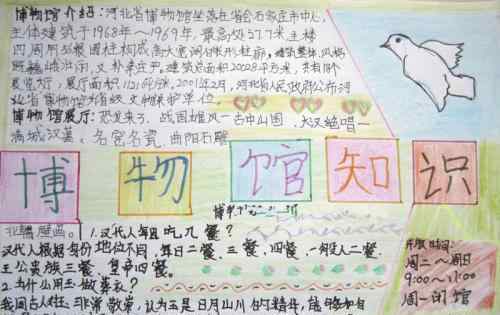 博物馆介绍：河北省博物馆坐落在省会石家庄市中心，
主体建筑于1968年～1969年，最高处27.7米，主楼
四周用56根圆柱构成高大宽阔的长形柱廊，建筑整体风格
既巍峨壮阔，又朴素庄严。建筑总面积20028平方米，共有18个
展览厅，展厅面积12164平方米，2001年2月，河北省人民政府公布河
北省博物馆为省级文物保护单位。
博物馆展厅：恐龙来了、战国雄风—古中山国、大汉绝唱—
满城汉墓、名窑名瓷、曲阳石雕
博物馆知识
北朝壁画。
1.汉代人每日吃几餐？
汉代人根据身份地位不同，每日二餐、三餐、四餐，一般人二餐、
王公贵族三餐、皇帝四餐。
2.为什么用玉做葬衣？
我国古人对玉非常敬崇，认为玉是日月山川的精华，能够
开放时间：
周二～周日
9:00～
周一闭馆